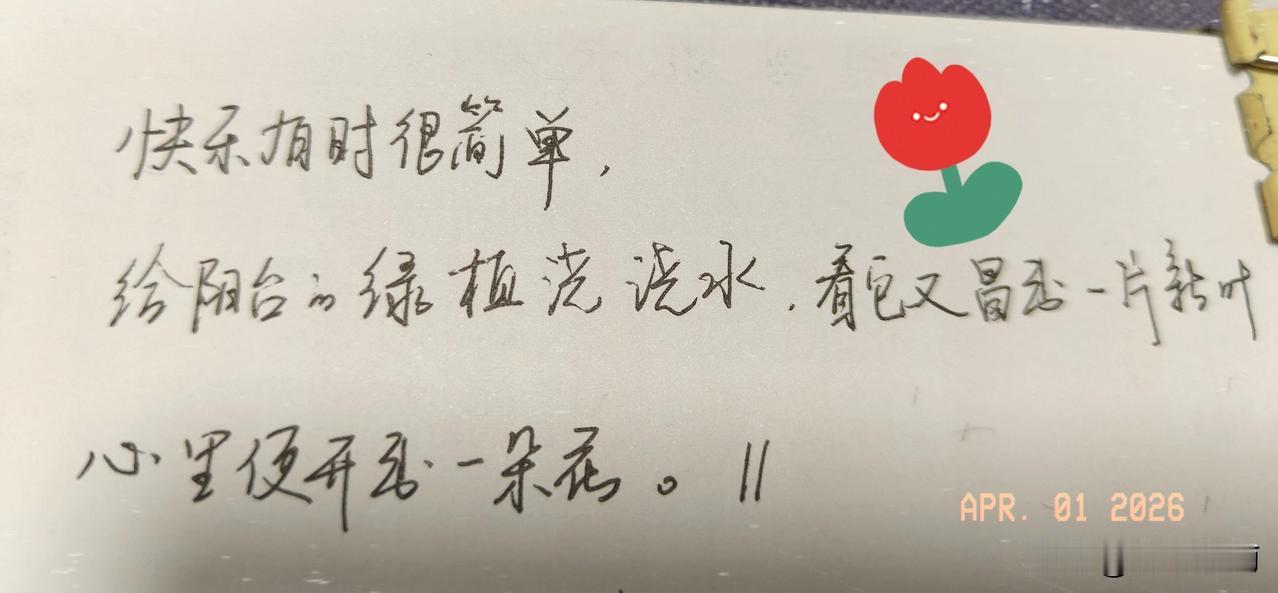 快乐有时很简单，
给阳台的绿植浇浇水，看它又冒出一片新叶
心里便开出一朵花。||
APR. 01 2026